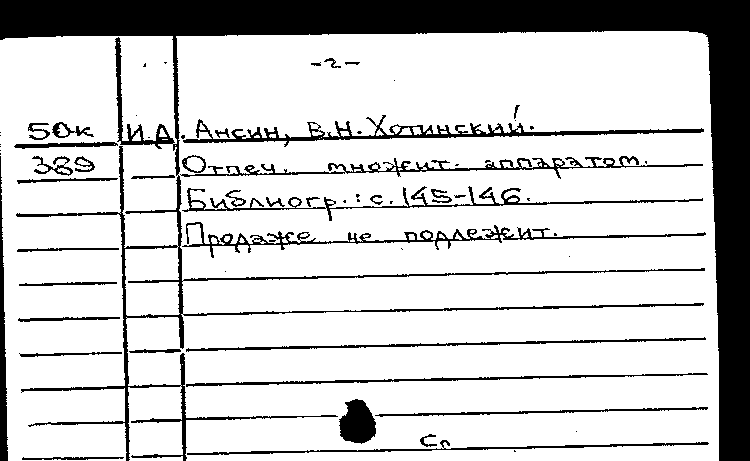 -2-
50к И.Д. Ансин, В.Н. Хотинский.
389 Отпеч. множит. аппаратом.
Библиогр.: с. 145-146.
Продаже не подлежит.
Сп